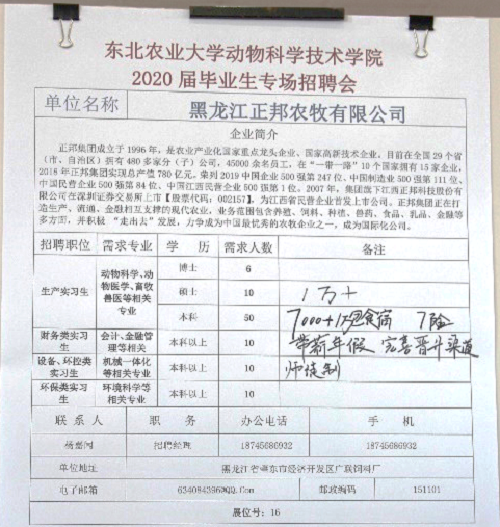 东北农业大学动物科学技术学院
2020届毕业生专场招聘会
单位名称 黑龙江正邦农牧有限公司
企业简介
正邦集团成立于1996年，是农业产业化国家重点龙头企业、国家高新技术企业，目前在全国29个省
（市、自治区）拥有480多家分（子）公司，45000余名员工，在“一带一路”10个国家拥有15家企业，
2018年正邦集团实现总产值780亿元，荣列2019中国企业500强第247位、中国制造业500强第111位、
中国民营企业500强第84位、中国江西民营企业500强第1位。2007年，集团旗下江西正邦科技股份有
限公司在深圳证券交易所上市【股票代码：002157】，为江西省民营企业首发上市公司。正邦集团正在打
造生产、流通、金融相互支撑的现代农业，业务范围包含养殖、饲料、种植、兽药、食品、乳品、金融等
多方面，并积极“走出去”发展，力争成为中国最优秀的农牧企业之一，成为国际化公司。
招聘职位 需求专业 学 历 需求人数 备注
生产实习生 动物科学，动物医学、畜牧兽医等相关专业 博士 6
硕士 10 1万+
本科 50 7000+ 包食宿
财务类实习生 会计、金融管理等相关 本科以上 10 带薪年假 完善晋升渠道
设备、环控类实习生 机械一体化等相关专业 本科以上 10 师徒制
环保类实习生 环境科学等相关专业 本科以上 10
联 系 人 职 务 办公电话 手 机
招聘经理 18745686932 18745686932
单位地址 黑龙江省肇东市经济开发区广联饲料厂
电子邮箱 634084396@QQ.Com 邮政编码 151101
展位号：16